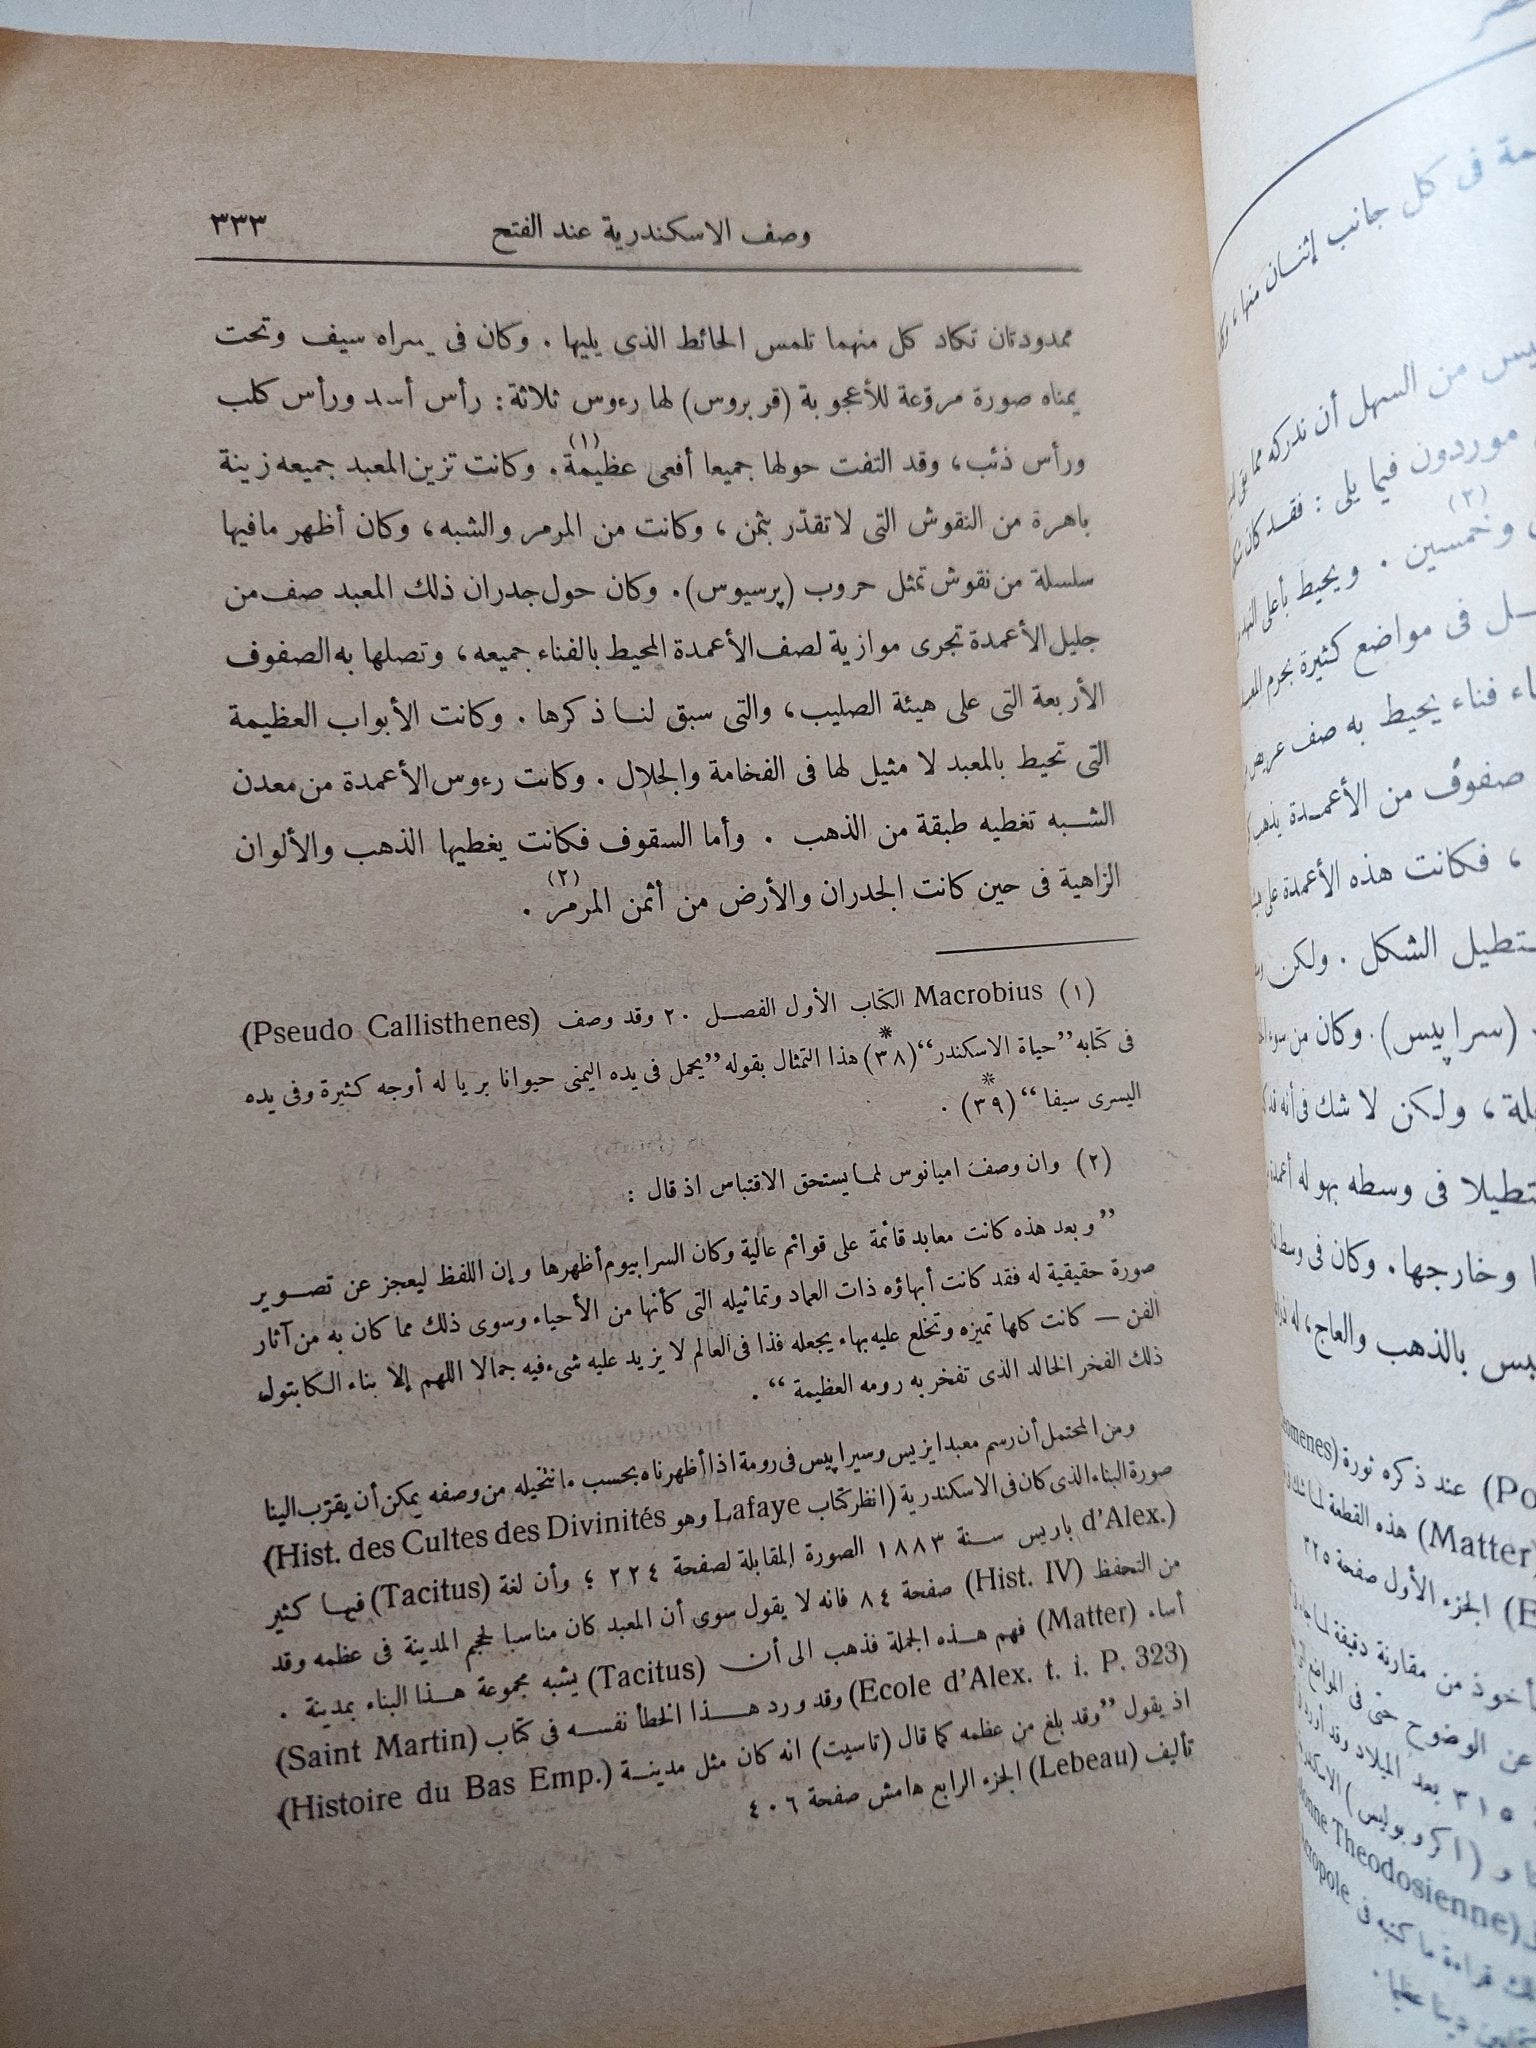 وصف الاسكندرية عند الفتح ٣٣٣
ممدودتان تكاد كل منهما تلمس الحائط الذى يليها . وكان فى يسراه سيف وتحت
يمناه صورة مروّعة للأعجوبة (قربروس) لها رءوس ثلاثة : رأس أسد ورأس كلب
ورأس ذئب ، وقد التفت حولها جميعا أفعى عظيمة(١). وكانت تزين المعبد جميعه زينة
باهرة من النقوش التى لا تقدّر بثمن ، وكانت من المرمر والشبه ، وكان أظهر مافيها
سلسلة من نقوش تمثل حروب (پرسيوس). وكان حول جدران ذلك المعبد صف من
جليل الأعمدة تجرى موازية لصف الأعمدة المحيط بالفناء جميعه ، وتصلها به الصفوف
الأربعة التى على هيئة الصليب ، والتى سبق لنا ذكرها . وكانت الأبواب العظيمة
التى تحيط بالمعبد لا مثيل لها فى الفخامة والجلال . وكانت رءوس الأعمدة من معدن
الشبه تغطيه طبقة من الذهب . وأما السقوف فكانت يغطيها الذهب والألوان
الزاهية فى حين كانت الجدران والأرض من أثمن المرمر(٢) .
(١) Macrobius الكتاب الأول الفصل ٢٠ وقد وصف (Pseudo Callisthenes)
فى كتابه ”حياة الاسكندر“ (٣٨*) هذا التمثال بقوله ”يحمل فى يده اليمنى حيوانا بريا له أوجه كثيرة وفى يده
اليسرى سيفا“ (٣٩*) .
(٢) وان وصف اميانوس لمما يستحق الاقتباس اذ قال :
”وبعد هذه كانت معابد قائمة على قوائم عالية وكان السرابيوم أظهرها وإن اللفظ ليعجز عن تصوير
صورة حقيقية له فقد كانت أبهاؤه ذات العماد وتماثيله التى كأنها من الأحياء وسوى ذلك مما كان به من آثار
الفن — كانت كلها تميزه وتخلع عليه بهاء يجعله فذا فى العالم لا يزيد عليه شىء فيه جمالا اللهم إلا بناء الكابتول
ذلك الفخر الخالد الذى تفخر به رومه العظيمة“ .
ومن المحتمل أن رسم معبد ايزيس وسيراپيس فى رومة اذا أظهرناه بحسب ما نتخيله من وصفه يمكن أن يقرّب الينا
صورة البناء الذى كان فى الاسكندرية (انظر كتاب Lafaye وهو Hist. des Cultes des Divinités)
(d'Alex. باريس سنة ١٨٨٣ الصورة المقابلة لصفحة ٢٢٤ ؛ وأن لغة (Tacitus) فيها كثير
من التحفظ (Hist. IV) صفحة ٨٤ فانه لا يقول سوى أن المعبد كان مناسبا لحجم المدينة فى عظمه وقد
أساء (Matter) فهم هذه الجملة فذهب الى أن (Tacitus) يشبه مجموعة هذا البناء بمدينة .
(Ecole d'Alex. t. i. P. 323) وقد ورد هذا الخطأ نفسه فى كتاب (Saint Martin)
اذ يقول ”وقد بلغ من عظمه كما قال (تاسيت) انه كان مثل مدينة (Histoire du Bas Emp.)
تأليف (Lebeau) الجزء الرابع هامش صفحة ٤٠٦
مة فى كل جانب إثنان منها ،
من السهل أن ندركه مما
موردون فيما يلى : فقد كان
وخمسين(٣) . ويحيط بأعلى
فى مواضع كثيرة بحرم
فناء يحيط به صف عريض
صفوف من الأعمدة
، فكانت هذه الأعمدة على
الشكل . ولكن
(سراپيس). وكان من سوء
، ولكن لا شك فى أنه
فى وسطه بهو له أعمدة
وخارجها. وكان فى وسط
بالذهب والعاج، له
عند ذكره ثورة
(Matter) هذه القطعة
الجزء الأول صفحة ٣٢٥
من مقارنة دقيقة
عن الوضوح حتى فى
٣١٥ بعد الميلاد وقد
و (اكروبوليس)
Theodosienne)
قراءة ما كتبه فى